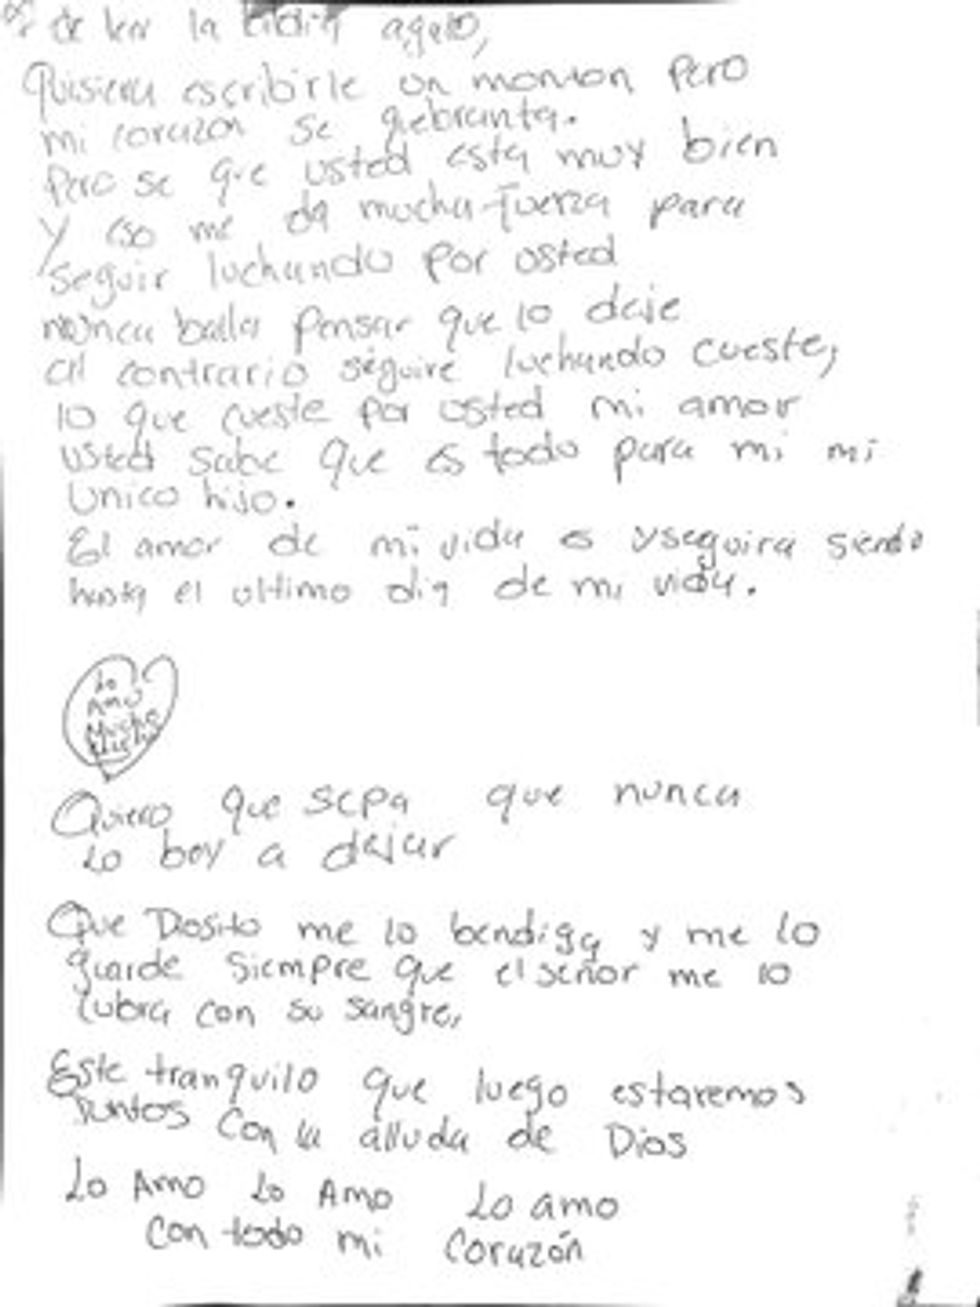 de leer la agalo,
Quisiera escribirle un monton pero
mi corazon se quebranta.
Pero se que usted esta muy bien
y eso me da mucha fuerza para
seguir luchando por usted
nunca balla pensar que lo deje
al contrario seguire luchando cueste,
lo que cueste por usted mi amor
usted sabe que es todo para mi mi
unico hijo.
El amor de mi vida es y seguira siendo
hasta el ultimo dia de mi vida.
Lo
Amo
Mucho
Mucho
Quiero que sepa que nunca
Lo boy a dejar
Que Diosito me lo bendiga y me lo
guarde siempre que el señor me lo
cubra con su sangre,
Este tranquilo que luego estaremos
Juntos con la alluda de Dios
Lo Amo Lo Amo Lo amo
con todo mi corazón